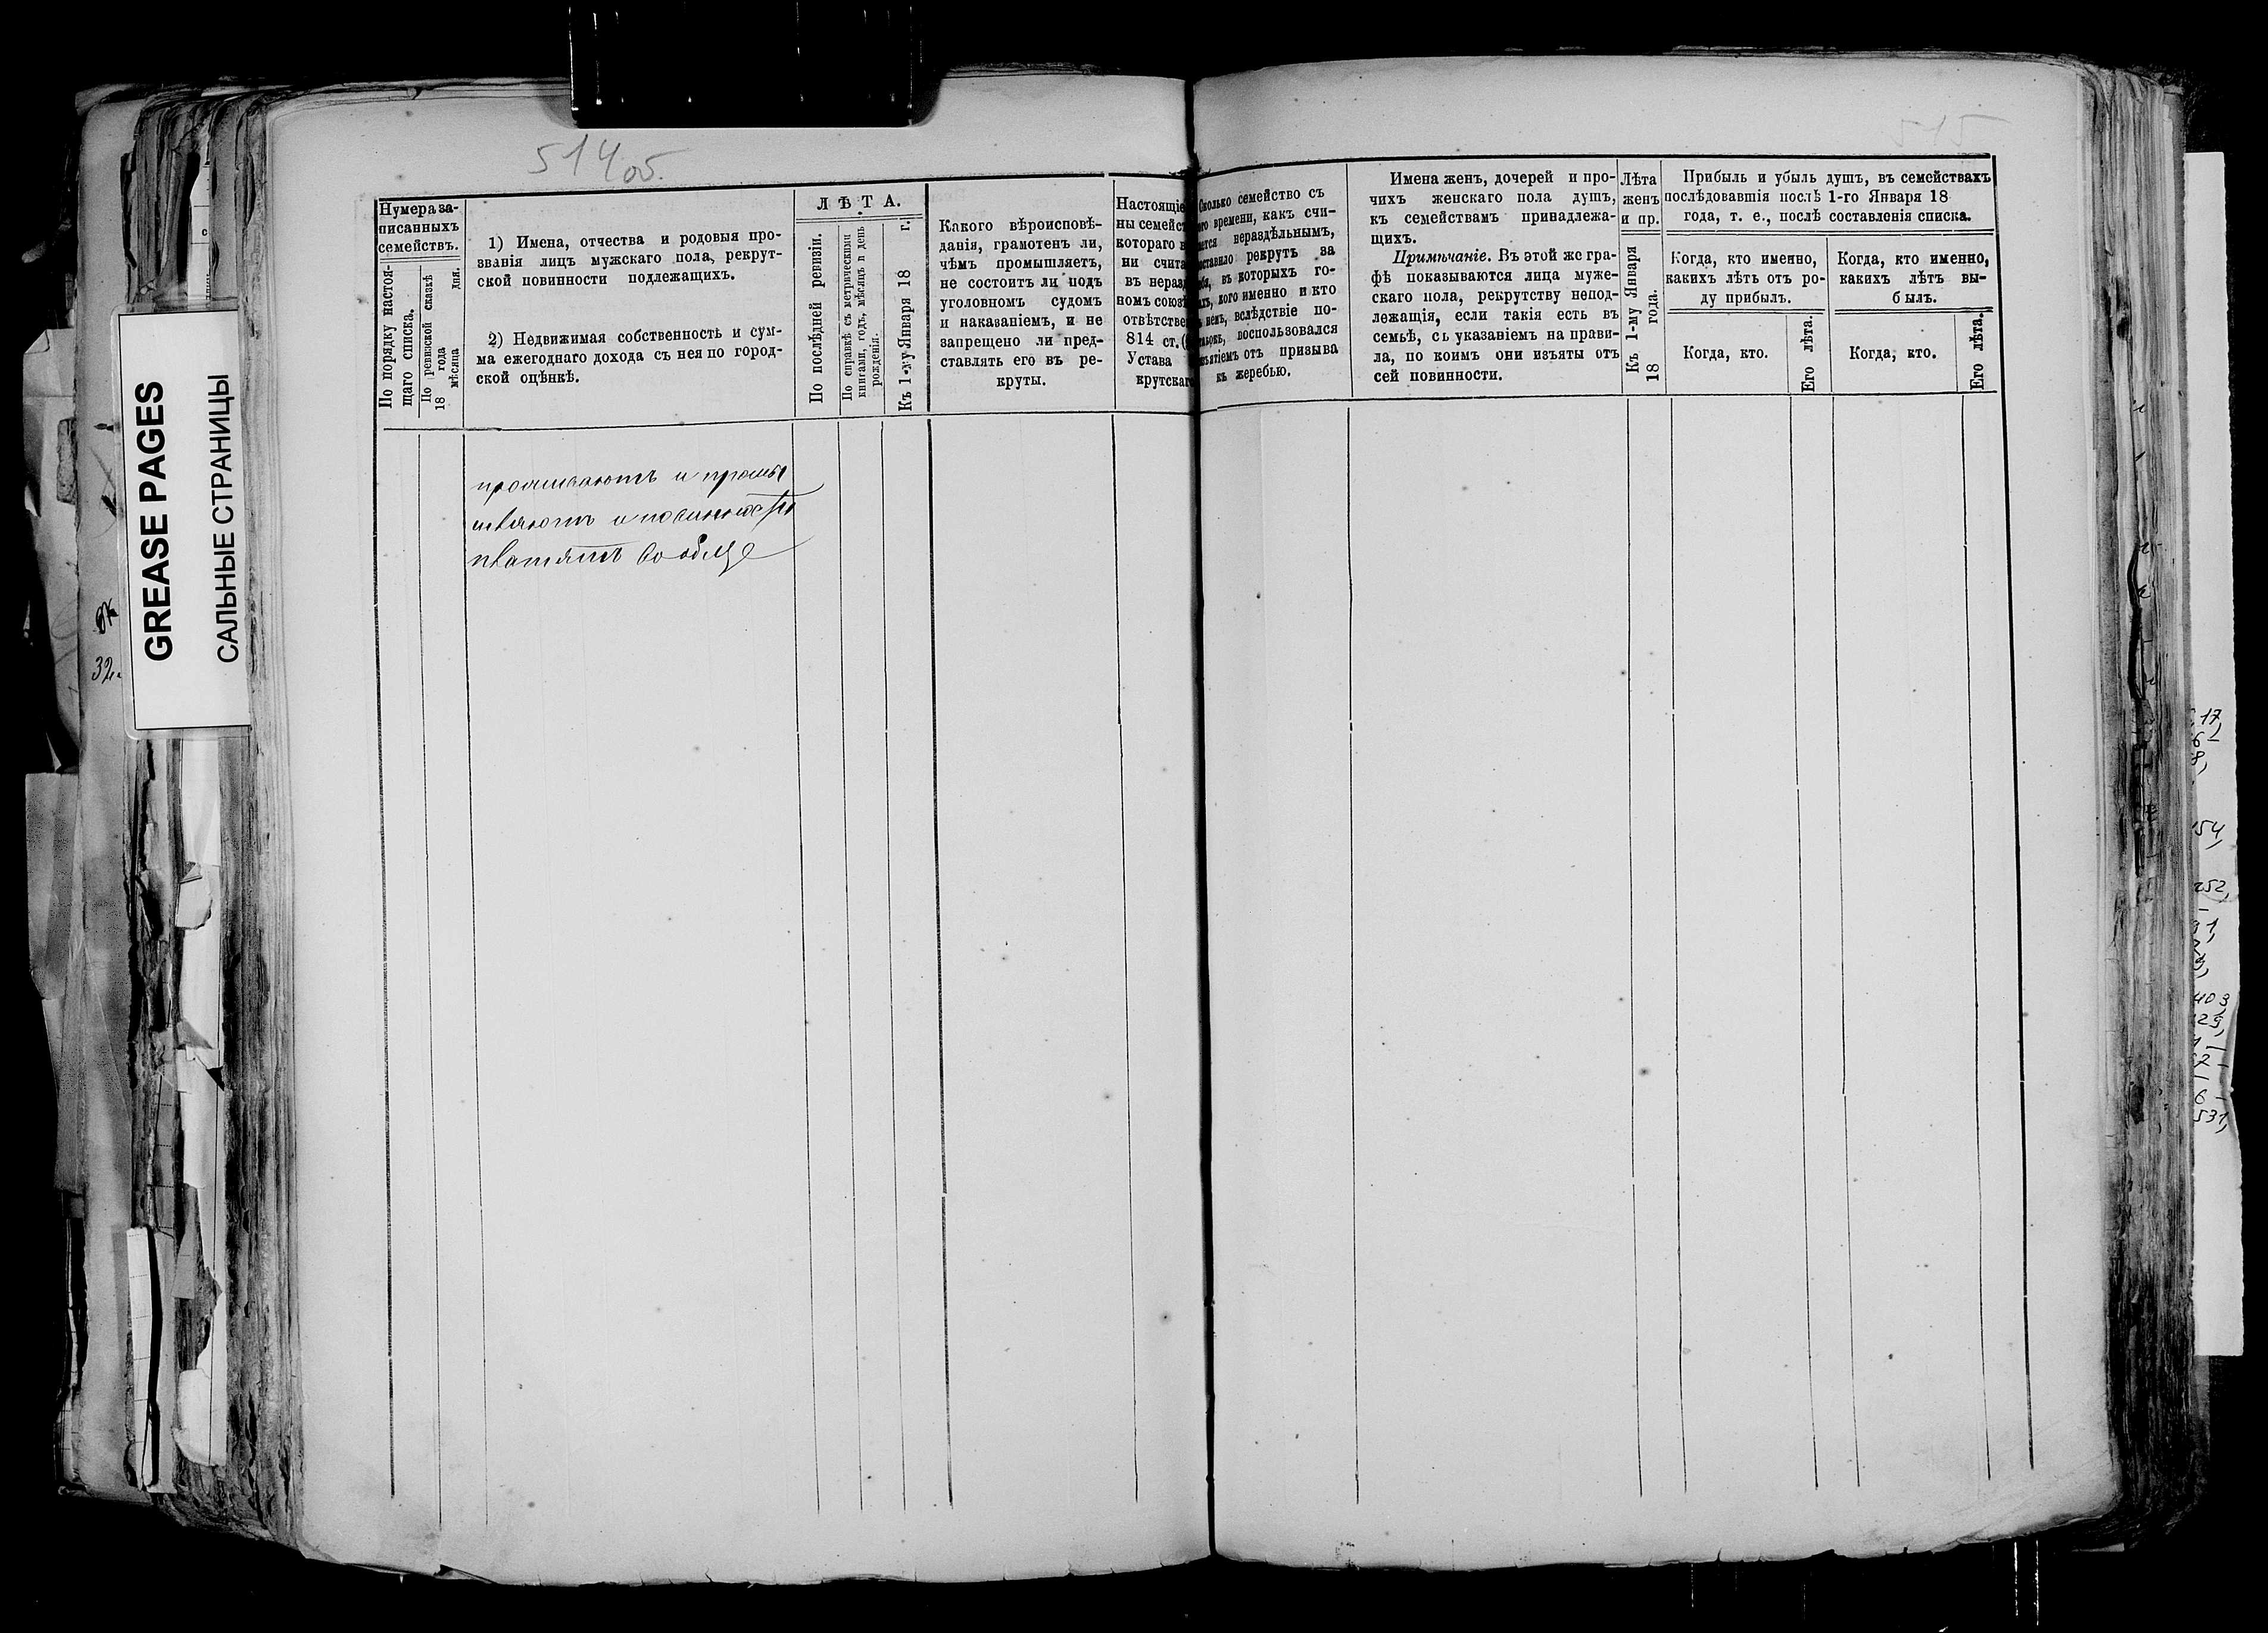 514 об.
515
GREASE PAGES
САЛЬНЫЕ СТРАНИЦЫ
Нумера за-
писанныхъ
семействъ.
По порядку настоя-
щаго списка.
По ревизской сказкѣ
18 года
мѣсяца дня.
1) Имена, отчества и родовыя про-
званія лицъ мужскаго пола, рекрут-
ской повинности подлежащихъ.
2) Недвижимая собственность и сум-
ма ежегоднаго дохода съ нея по город-
ской оцѣнкѣ.
ЛѢТА.
По послѣдней ревизіи.
По справкѣ съ метрическими
книгами, годъ, мѣсяцъ и день
рожденія.
Къ 1-му Января 18 г.
Какого вѣроисповѣ-
данія, грамотенъ ли,
чѣмъ промышляетъ,
не состоитъ ли подъ
уголовномъ судомъ
и наказаніемъ, и не
запрещено ли пред-
ставлять его въ ре-
круты.
Настоящіе
ны семейст
котораго в
ни счита
въ нераз
номъ союз
отвѣтстве
814 ст. (
Устава
крутскаг
Сколько семейство съ
ого времени, какъ счи-
тается нераздѣльнымъ,
оставило рекрутъ за
въ которыхъ го-
кого именно и кто
нихъ, вслѣдствіе по-
воспользовался
изъятіемъ отъ призыва
къ жеребью.
Имена женъ, дочерей и про-
чихъ женскаго пола душъ,
къ семействамъ принадлежа-
щихъ.
Примѣчаніе. Въ этой же гра-
фѣ показываются лица муже-
скаго пола, рекрутству непод-
лежащія, если такія есть въ
семьѣ, съ указаніемъ на прави-
ла, по коимъ они изъяты отъ
сей повинности.
Лѣта
женъ
и пр.
Къ 1-му Января
18 года.
Прибыль и убыль душъ, въ семействахъ
послѣдовавшія послѣ 1-го Января 18
года, т. е., послѣ составленія списка.
Когда, кто именно,
какихъ лѣтъ отъ ро-
ду прибылъ.
Когда, кто.
Его лѣта.
Когда, кто именно,
какихъ лѣтъ вы-
былъ.
Когда, кто.
Его лѣта.
проживаютъ и промы
шляютъ и повинности
платятъ вообще
32
17,
154,
252,
403,
29,
531,